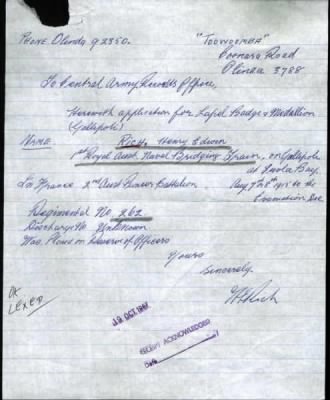 PHONE Olinda 92350.
"TOOWOOMBA"
Coonara Road
Olinda 3788
To Central Army Records Office,
Herewith application for Lapel Badge & Medallion
(Gallipoli)
NAME
RICH. Henry Edwin
1st Royal Aust Naval Bridging Train, on Gallipoli
at Suvla Bay.
Aug 7th 8th 1915 to the
Evacuation Dec
In France 2nd Aust Pioneer Battalion
Regimental No 262
Discharge No Unknown
Was Placed on Reserve of Officers
Yours
Sincerely.
HERich
LEXED
19 OCT 1967
RECEIPT ACKNOWLEDGED
Date